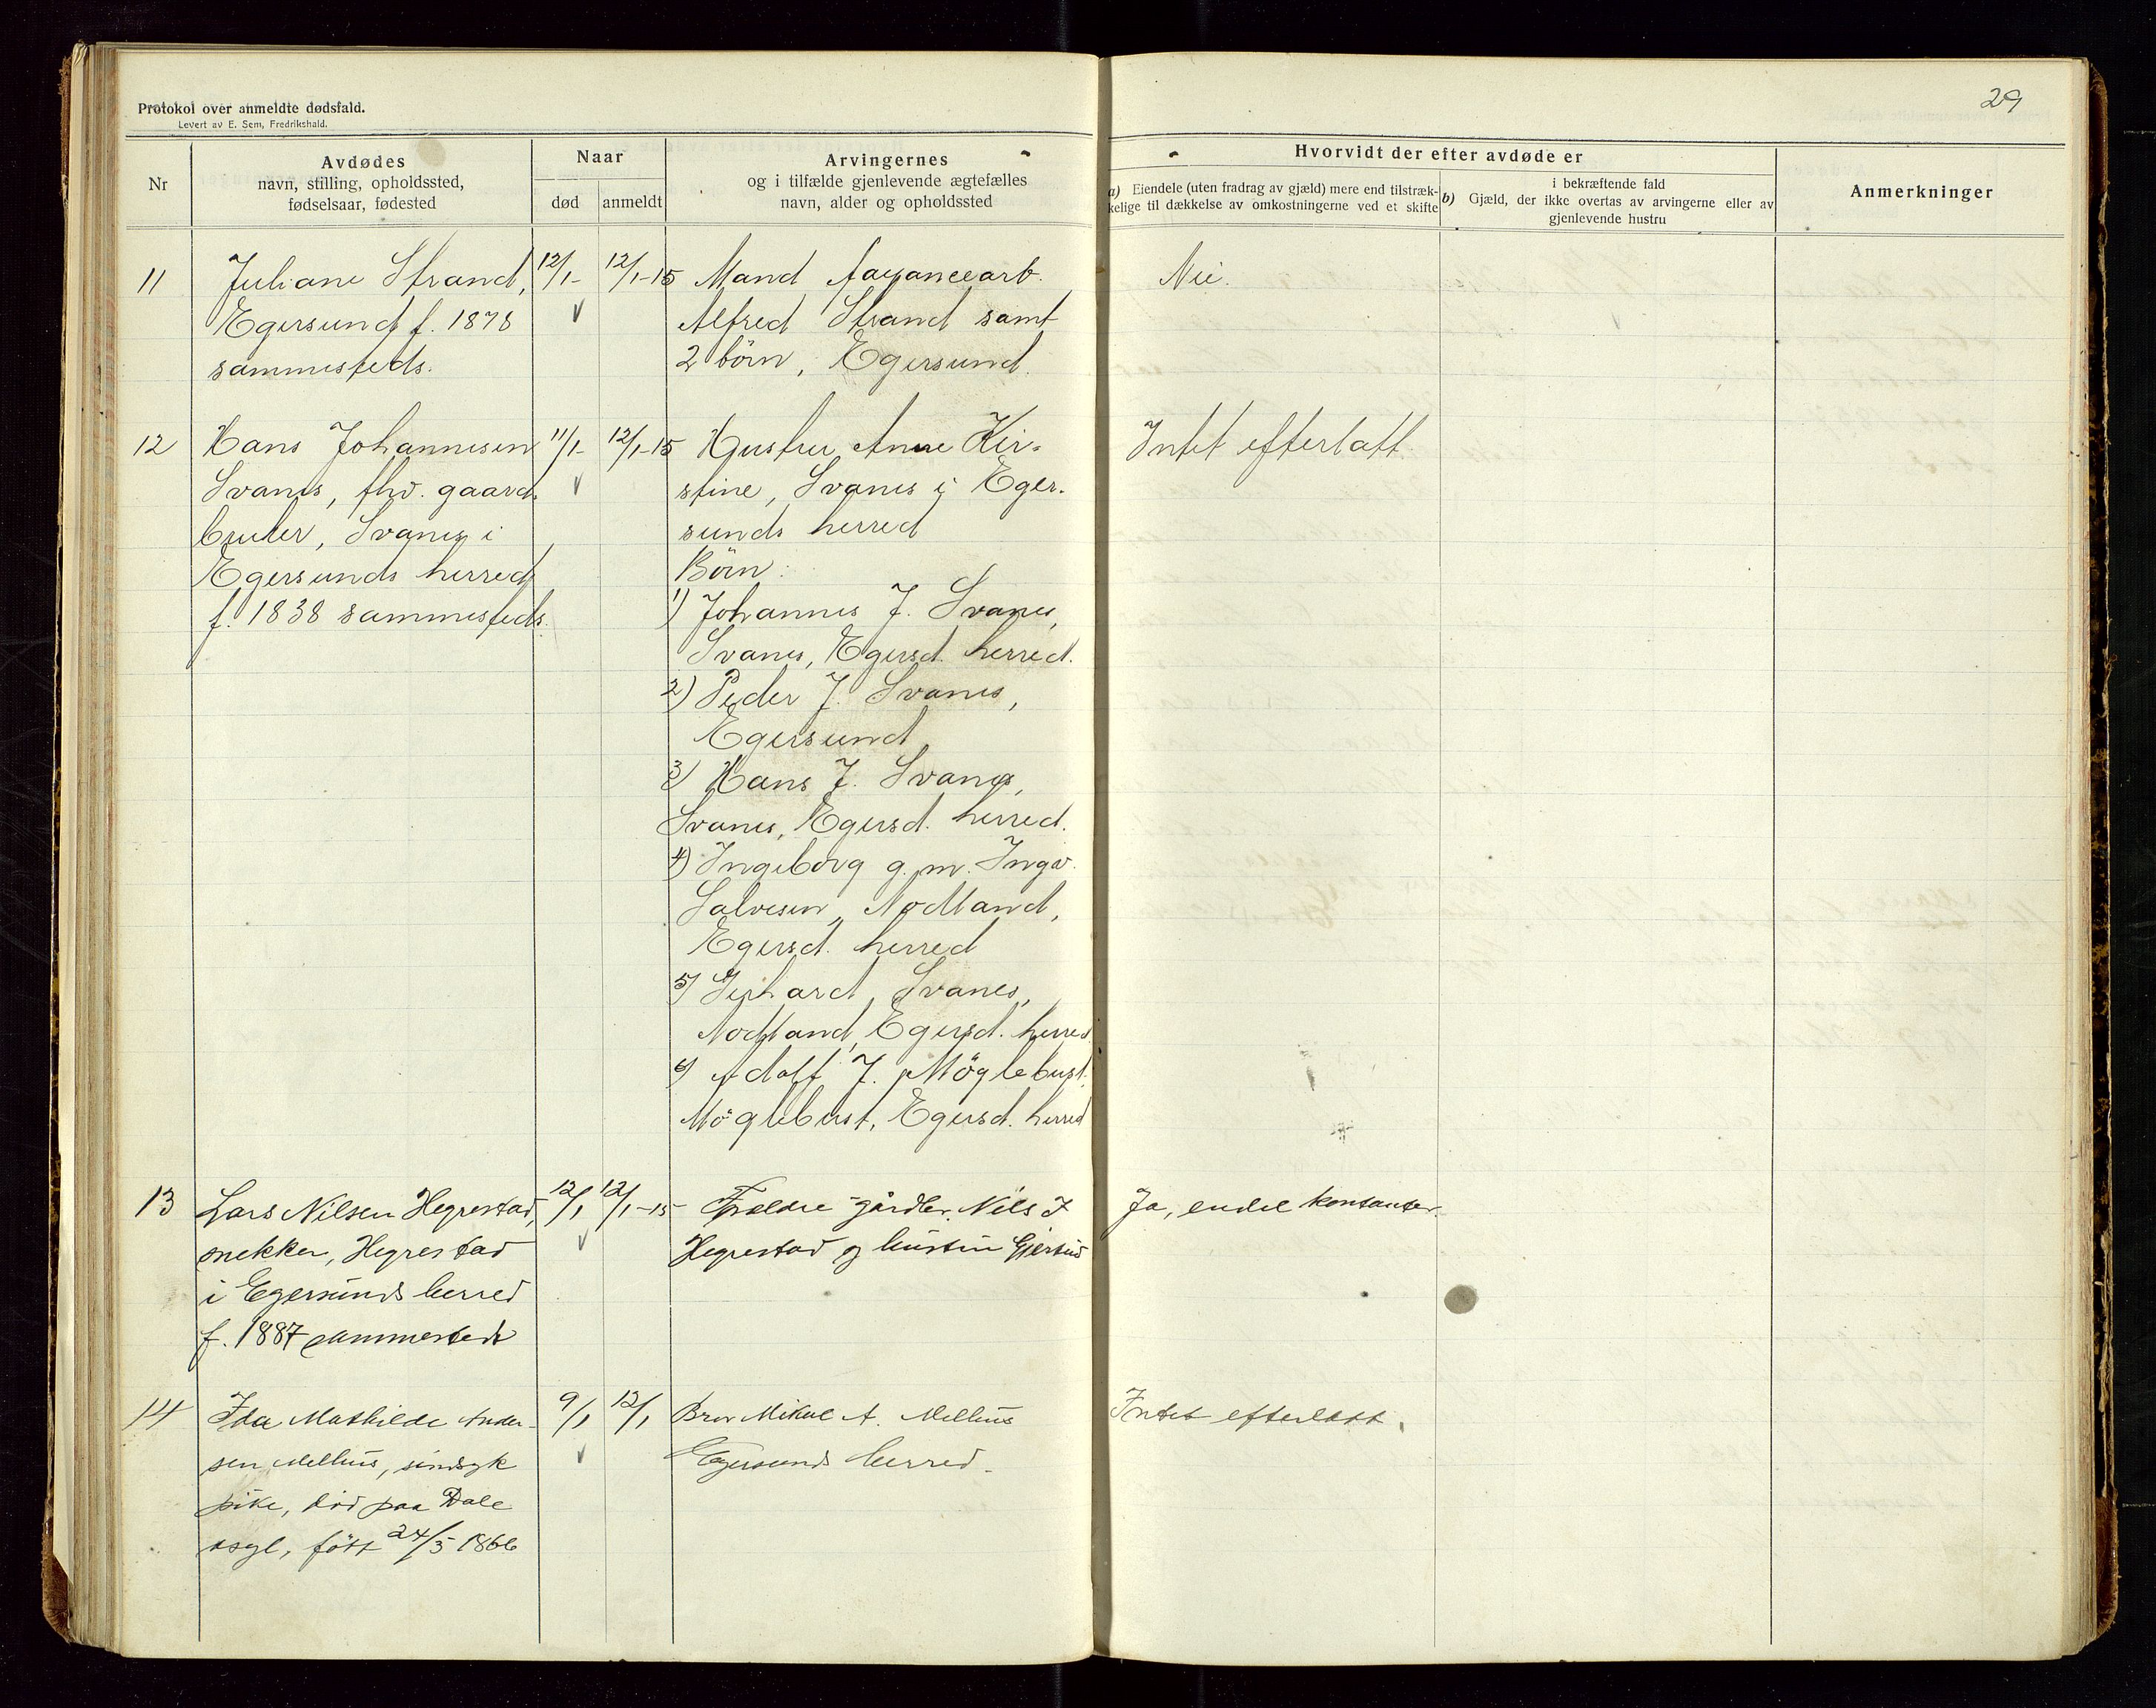 Protokol over anmeldte dødsfald.
Levert av E. Sem, Fredrikshald.
29
Nr
Avdødes
navn, stilling, opholdssted,
fødselsaar, fødested
Naar
død
anmeldt
Arvingernes
og i tilfælde gjenlevende ægtefælles
navn, alder og opholdssted
Hvorvidt der efter avdøde er
a) Eiendele (uten fradrag av gjæld) mere end tilstræk-
kelige til dækkelse av omkostningerne ved et skifte
b) i bekræftende fald
Gjæld, der ikke overtas av arvingerne eller av
gjenlevende hustru
Anmerkninger
11
Juliane Strand,
Egersund f. 1878
sammesteds.
12/1-
12/1-15
Mand fayancearb.
Alfred Strand samt
2 börn, Egersund.
Nei.
12
Hans Johannesen
Svanes, fhv. gaard-
bruker, Svanes i
Egersunds herred
f. 1838 sammesteds.
11/1-
12/1-15
Hustru Anne Kir-
stine, Svanes i Eger-
sunds herred
Börn:
1) Johannes J. Svanes,
Svanes, Egersd. herred.
2) Peder J. Svanes,
Egersund
3) Hans J. Svanes,
Svanes, Egersd. herred.
4) Ingeborg g. m. Ingv.
Salvesen, Nodland,
Egersd. herred
5) Gerhard Svanes,
Nodland, Egersd. herred
6) Adolf J. Möglebust,
Möglebust, Egersd. herred
Intet efterlatt.
13
Lars Nilsen Hegrestad,
snekker, Hegrestad
i Egersunds herred
f. 1887 sammesteds
12/1
12/1-15
Foeldre gårdbr. Nils J
Hegrestad og hustru
Ja, endel kontanter.
14
Ida Mathilde Ander-
sen Melhus, sindsyk
pike, död paa Dale
asyl, född 24/5 1866
9/1
12/1
Bror Mikal A. Melhus
Egersunds herred.
Intet efterlatt.